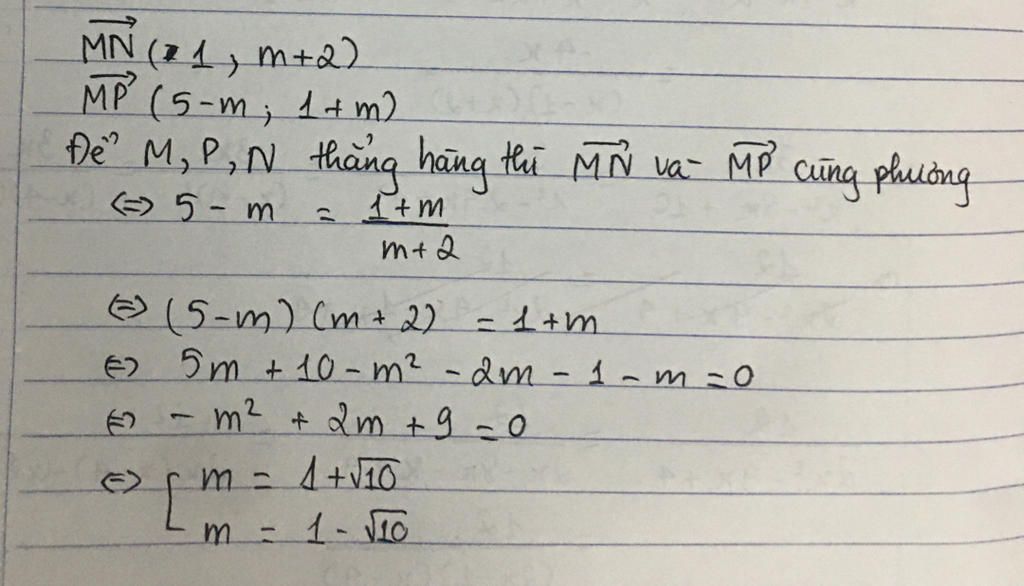 MN (1, m+2)
MP (5-m; 1+m)
Để M, P, N thẳng hàng thì MN và MP cùng phương
⇔ 5 - m = 1+m / m+2
⇔ (5-m)(m+2) = 1+m
⇔ 5m + 10 - m² - 2m - 1 - m = 0
⇔ - m² + 2m + 9 = 0
⇔ [ m = 1+√10
m = 1-√10